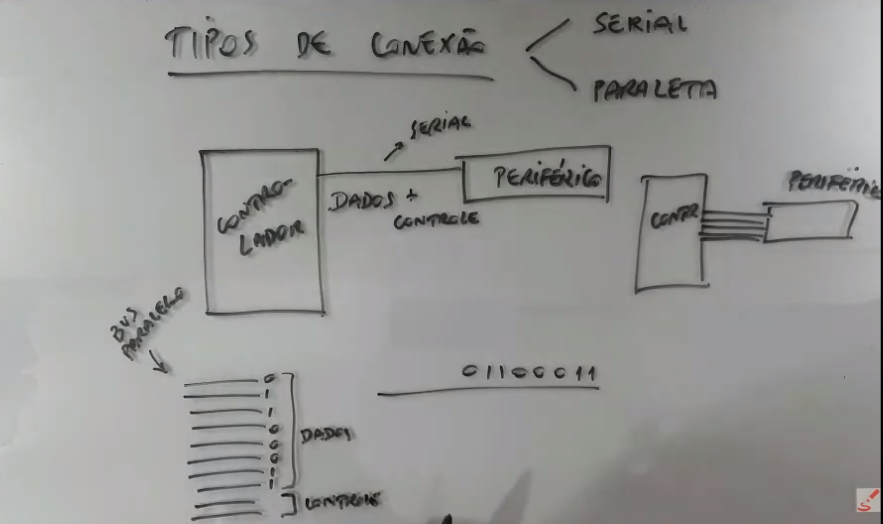 TIPOS DE CONEXÃO
SERIAL
PARALELA
SERIAL
CONTRO-
LADOR
DADOS +
CONTROLE
PERIFÉRICO
CONTR
PERIFÉRIC
BUS
PARALELO
0
1
1
0
0
0
1
1
DADOS
CONTROLE
01100011